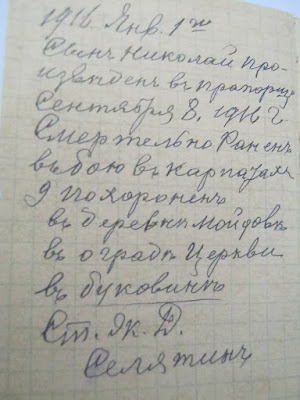 1916. Янв. 1го
Сынъ Николай про-
изведенъ въ прапорщ
Сентября 8. 1916 г
Смертельно Раненъ
въ бою въ Карпатах
9 похороненъ
въ деревнѣ Мойдовкѣ
въ оградѣ Церкви
въ Буковинѣ
Ст. Як. Д.
Селятинъ